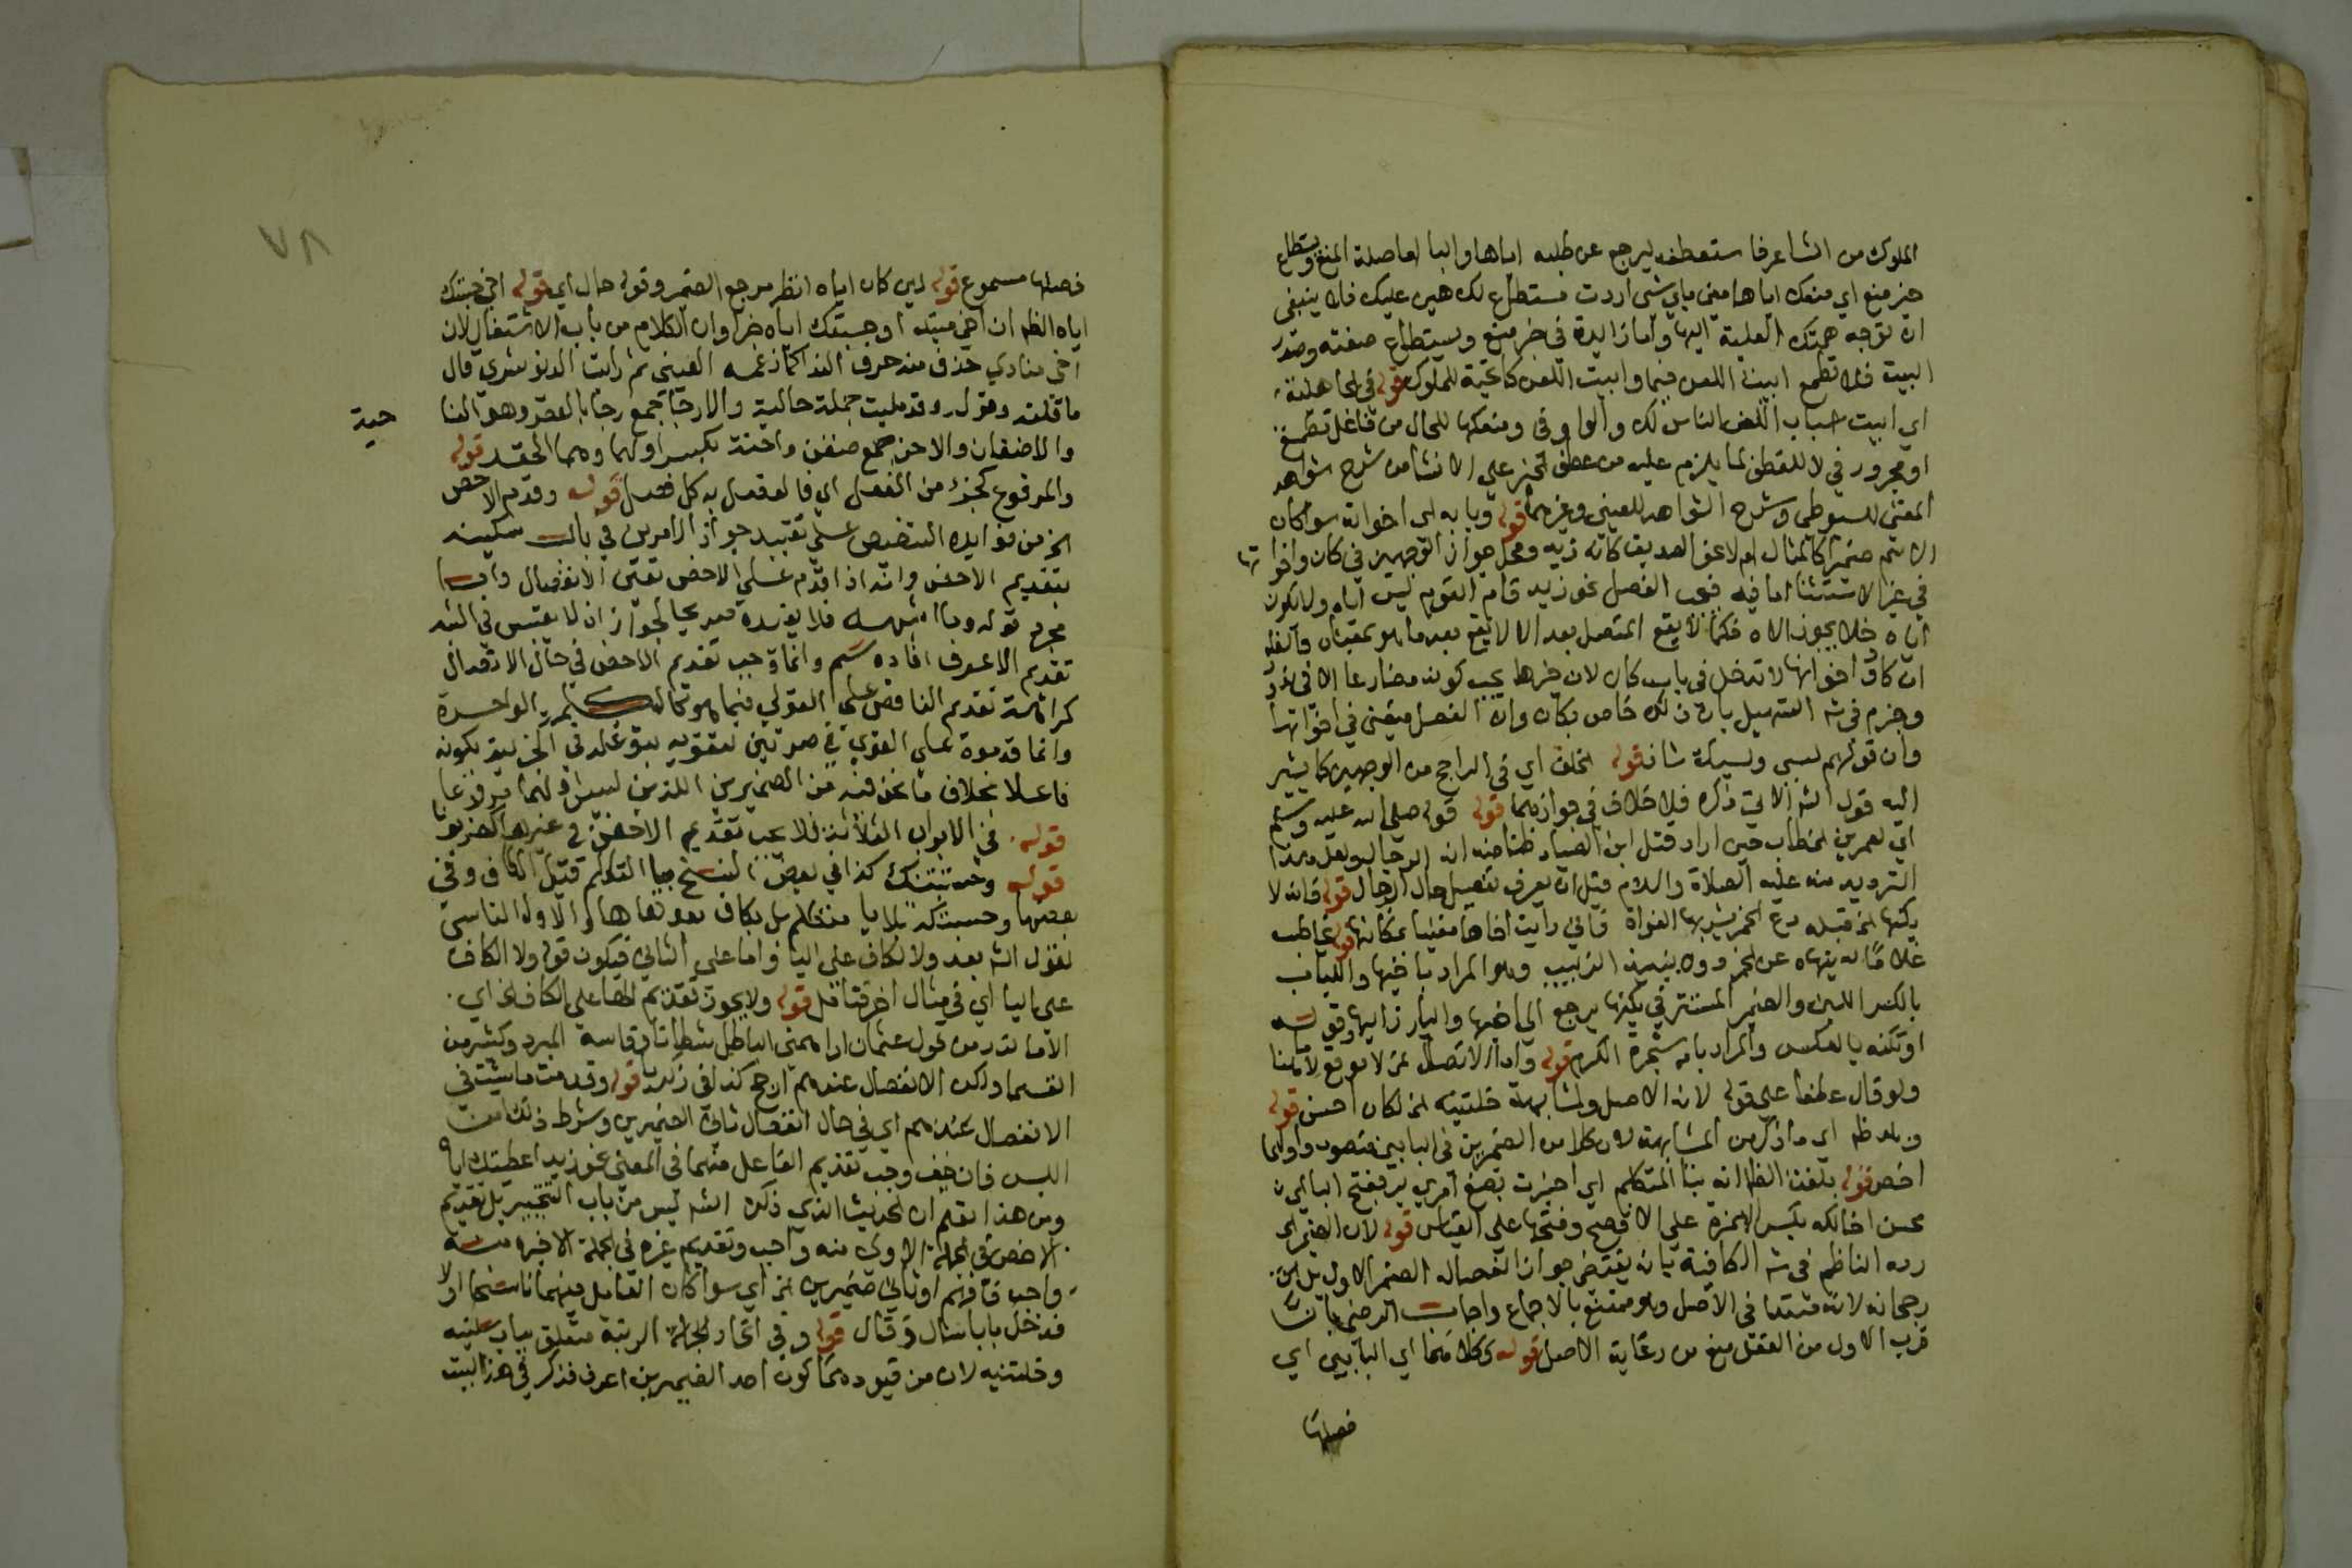 الملوك من الشاعر فاستعطفه ليرجع عن طلبه اياها والبا اما صلة المنع ويستطاع
خبر منع اي منعك اياها مني باي شي اردت مستطاع لك هين عليك فلا ينبغي
ان توجه همتك العلية اليها واما زايدة في خبر منع ويستطاع صفته وصدر
البيت فلا تطمع ابيت اللعن فيها وابيت اللعن كا تحية للملوك قوله في الجاهلية
اي ابيت اسباب اللعن الناس لك والواو في ومنعكها للحال من فاعل تطمع
او مجرور في لا للعطف لما يلزم عليه من عطف الخبر على الانشا من شرح شواهد
المغني للسيوطي وشرح الشواهد للعيني وغيرهما قوله وبابه اي اخواته سوا كان
الاسم ضميرا كالمثال ام لا نحو الصديق كانه زيد ومحل جواز الوجهين في كان واخواتها
في غير الاستثنا اما فيه فيجب الفصل نحو زيد قام القوم ليس اياه ولا يكون
اياه فلا يجوز الاه فكما لا يقع المتصل بعد الا لا يقع بعد ما هو بمعناها والظ
ان كاد واخواتها لا تدخل في باب كان لان خبرها يجب كونه مضارعا الا في نذور
وجزم في شر التسهيل بان ذلك خاص بكان وان الفصل متعين في اخواتها
وان قولهم ليسي وليسك شاذ قوله الخلف اي في الراجح من الوجهين كما يشير
اليه قول الشر الاتي ذكره فلا خلاف في جوازهما قوله قوله صلى الله عليه وسلم
اي لعمر بن الخطاب حين اراد قتل ابن الصياد ظنا منه انه الدجال ولعل هذا
الترديد منه عليه الصلاة والسلام قبل ان يعرف تفصيل حال الدجال قوله فانه لا
يكنها الخ قبله دع الخمر يشربها الغواة فاني رايت اخاها مغنيا بمكانها قوله يخاطب
غلاما له ينهاه عن الخمر دون نبيذ الزبيب وهو المراد باخيها واللبان
بالكسر اللبن والضمير المستتر في يكنها يرجع الى اخيها والبارز اليها وقوله
او تكنه بالعكس والمراد بامه شجرة الكرم قوله واما الاتصال الخ لا موقع لاما هنا
ولو قال عطفا على قوله لانه الاصل ولمشابهة خلتنيه الخ لكان احسن قوله
وهو ظ اي ما ذكر من المشابهة لان كلا من الضميرين في البابين منصوب واولهما
اخص قوله بلغت الظ انه بتا المتكلم اي اخبرت بصنع امري بر بفتح البا اي
محسن اخالكه بكسر الهمزة على الافصح وفتحها على القياس قوله لان الضمير اي
رده الناظم في شر الكافية بانه يقتضي جواز انفصال الضمير الاول بل
رجحانه لانه مبتدا في الاصل وهو ممتنع بالاجماع واجاب الرضى بان
قرب الاول من الفعل منع من رعاية الاصل قوله وكلاهما اي البابين اي
فصلها
٧٨
فصلها مسموع قوله لين كان اياه انظر مرجع الضمير وقوله حال اي قوله اخي حسبتك
اياه الظ ان اخي مبتدا وحسبتك اياه خبر او ان الكلام من باب الاشتغال لان
اخي منادي حذف منه حرف الندا كما زعمه العيني ثم رايت الدنوشري قال
ما قلته وقوله وقد مليت جملة حالية والارجا جمع رجا بالقصر وهو النا
حية
والاضغان والاحن جمع ضغن واحنة بكسر اولهما وهما الحقد قوله
والمرفوع كجزء من الفعل اي فالفصل به كلا فصل قوله وقدم الاخص
الخ من فوايده التنصيص على تقييد جواز الامرين في باب سلنيه
بتقديم الاخص وانه اذا قدم على الاخص تعين الانفصال وايضا
مجرد قوله وما اشبهه فلا يفيده صريحا لجواز ان لا يعتبر في الشبه
تقديم الاعرف افاده سم وانما وجب تقديم الاخص في حال الاتصال
كراهة تقديم الناقص على القوي فيما هو كالكلمة الواحدة
وانما قدموه على القوي في ضربتني لتقويه بتوغله في الجزئية بكونه
فاعلا بخلاف ما نحن فيه من الضميرين اللذين ليس اولهما مرفوعا
قوله في الابواب الثلاثة فلا يجب تقديم الاخص في غيرها كضربونا
قوله وحسبتنك كذا في بعض النسخ بيا المتكلم قبل الكاف وفي
بعضها وحسبتكه بلا يا متكلم بل بكاف بعدها ها والاول المناسب
لقول الشر بعد ولا الكاف على اليا واما على الثاني فيكون قوله ولا الكاف
على اليا اي في مثال اخر فتامل قوله ولا يجوز تقديم الها على الكاف الخ اي
الا ما ندر من قول عثمان اراهمني الباطل شيطانا وقاسه المبرد وكثير من
القدما ولكن الانفصال عندهم ارجح كذا في زكريا قوله وقدمن ما شيت في
الانفصال عندهم اي في حال انفصال ثاني الضميرين وشرط ذلك امن
اللبس فان خيف وجب تقديم الفاعل منهما في المعنى نحو زيد اعطيتك اياه
ومن هذا تعلم ان الحديث الذي ذكره الشر ليس من باب التخيير بل تقديم
الاخص في الجملة الاولى منه واجب وتقديم غيره في الجملة الاخيره منه
واجب فافهم او ثاني ضميرين الخ اي سوا كان العامل فيهما ناسخا اولا
فدخل بابا سال وخال قوله وفي اتحاد الرتبة متعلق بباب سلنيه
وخلتنيه لان من قيودهما كون احد الضميرين اعرف فذكر في هذا البيت